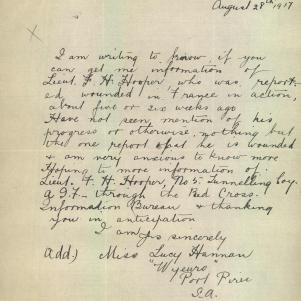 August 28th, 1917
I am writing to know, if you
can get me information of
Lieut. F. H. Hooper who was report-
ed wounded in France in action,
about five or six weeks ago
Have not seen mention of his
progress or otherwise, nothing but
the one report that he is wounded
& am very anxious to know more
Hoping to more information of
Lieut. F. H. Hooper, No 5. Tunnelling Coy.
A.I.F. through the Red Cross
Information Bureau & thanking
you in anticipation
I am Yrs sincerely
Add.) Miss Lucy Hannan
Port Pirie
S.A.